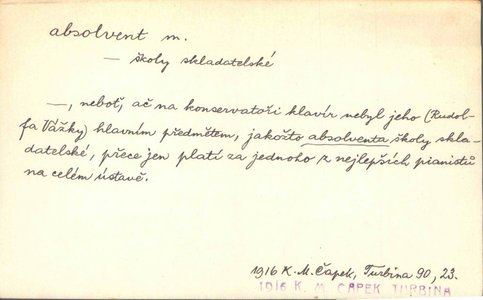 absolvent m.
— školy skladatelské
—, neboť, ač na konservatoři klavír nebyl jeho (Rudol-
fa Vážky) hlavním předmětem, jakožto absolventa školy skla-
datelské, přece jen platí za jednoho z nejlepších pianistů
na celém ústavě.
1916 K. M. Čapek, Turbina 90, 23.
1916 K. M. ČAPEK TURBINA